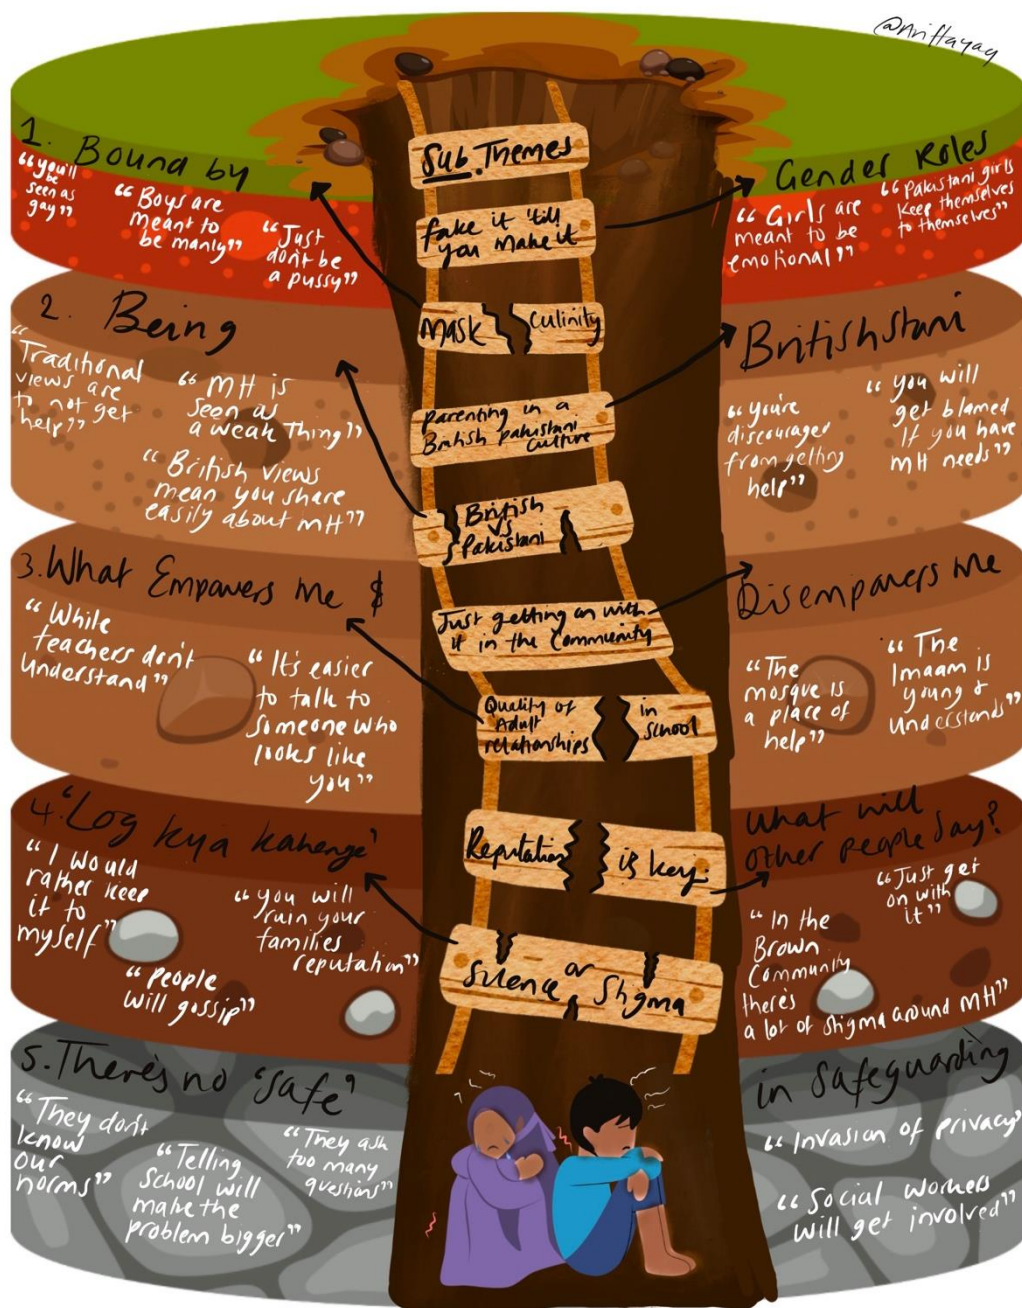 @nriftayag
1. Bound by
Gender Roles
"you'll
be
seen as
gay"
"Boys are
meant to
be manly"
"Just
don't be
a pussy"
"Girls are
meant to be
emotional"
"Pakistani girls
keep themselves
to themselves"
Sub-Themes
fake it 'till
you make it
MASK CULINITY
Parenting in a
British Pakistani
culture
British
vs
Pakistani
Just getting on with
it in the community
Quality of
Adult
relationships
in
school
Reputation is key.
Silence or Stigma
2. Being
Britishstani
"Traditional
views are
to not get
help"
"MH is
seen as
a weak thing"
"British views
mean you share
easily about MH"
"you're
discouraged
from getting
help"
"you will
get blamed
If you have
MH needs"
3. What Empowers me &
Disempowers me
"While
teachers don't
understand"
"It's easier
to talk to
someone who
looks like
you"
"The
mosque is
a place of
help"
"The
Imaam is
young &
understands"
4. 'Log kya kahenge'
What will
other people say?
"I would
rather keep
it to
myself"
"you will
ruin your
families
reputation"
"People
will gossip"
"In the
Brown
Community
there's
a lot of stigma around MH"
"Just get
on with
it"
5. There's no 'safe'
in Safeguarding
"They don't
know
our
norms"
"Telling
School will
make the
problem bigger"
"They ask
too many
questions"
"Invasion of privacy"
"Social workers
will get involved"